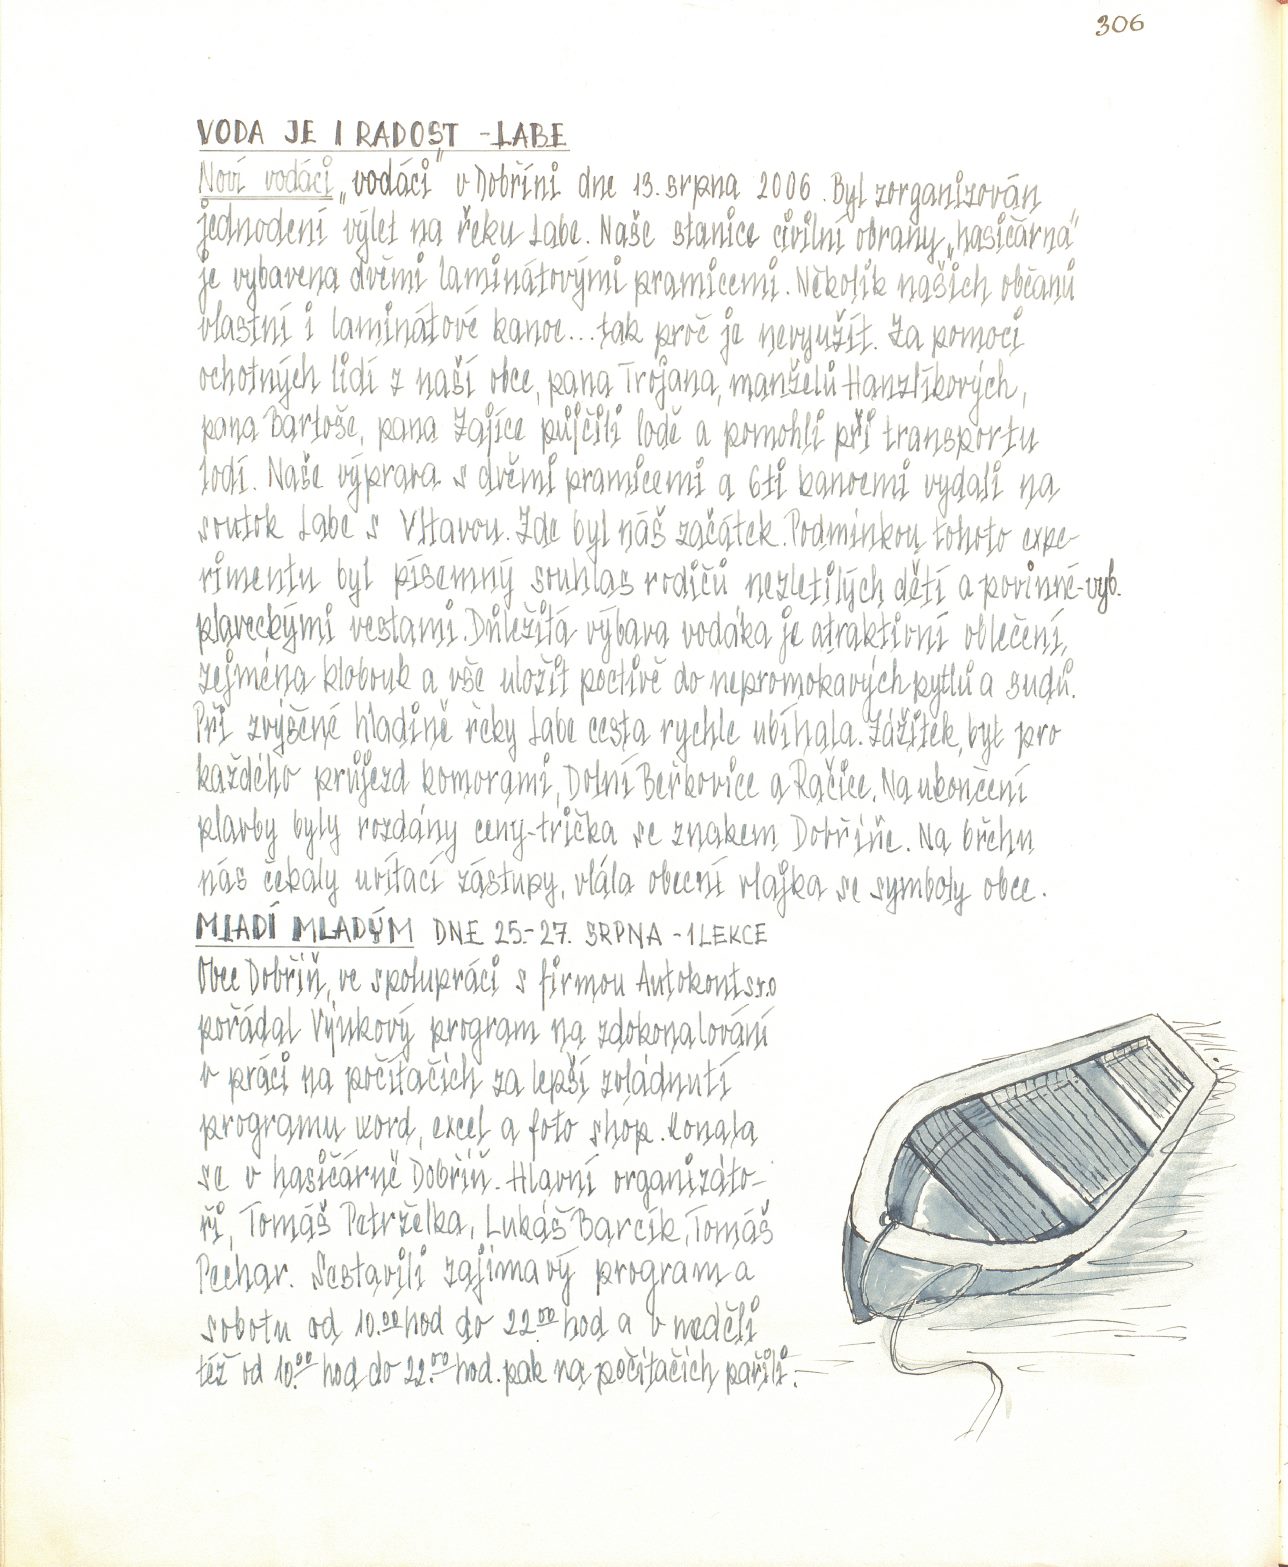 306
VODA JE I RADOST - LABE
Noví vodáci „vodáci" v Dobříni dne 13. srpna 2006. Byl zorganizován
jednodení výlet na řeku Labe. Naše stanice civilní obrany „hasičárna"
je vybavena dvěmi laminátovými pramicemi. Několik našich občanů
vlastní i laminátové kanoe...tak proč je nevyužít. Za pomoci
ochotných lidí z naší obce, pana Trojana, manželů Hanzlíkových,
pana Bartoše, pana Zajíce půjčili lodě a pomohli při transportu
lodí. Naše výprava s dvěmi pramicemi a 6ti kanoemi vydali na
soutok Labe s Vltavou. Zde byl náš začátek. Podmínkou tohoto expe-
rimentu byl písemný souhlas rodičů nezletilých dětí a povinné-vyb.
plaveckými vestami. Důležitá výbava vodáka je atraktivní oblečení,
zejména klobouk a vše uložit poctivě do nepromokavých pytlů a sudů.
Při zvýšené hladině řeky Labe cesta rychle ubíhala. Zážitek, byl pro
každého průjezd komorami, Dolní Beřkovice a Račice. Na ukončení
plavby byly rozdány ceny-trička se znakem Dobříně. Na břehu
nás čekaly uvítací zástupy, vlála obecní vlajka se symboly obce.
MLADÍ MLADÝM DNE 25.-27. SRPNA - 1 LEKCE
Obec Dobříň, ve spolupráci s firmou Autokont s.r.o
pořádal Výukový program na zdokonalování
v práci na počítačích za lepší zvládnutí
programu word, excel a foto shop. Konala
se v hasičárně Dobříň. Hlavní organizáto-
ři, Tomáš Petrželka, Lukáš Barcík, Tomáš
Pechar. Sestavili zajímavý program a
sobotu od 10.00 hod do 22.00 hod a v neděli
též od 10.00 hod do 22.00 hod. pak na počítačích pařili.